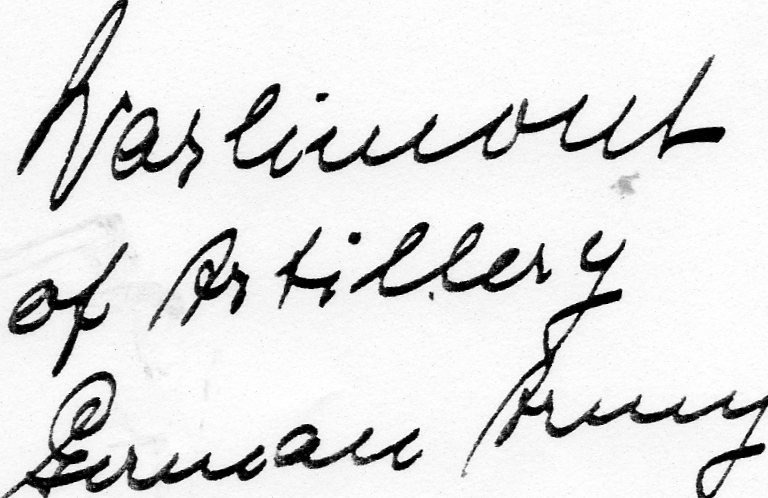 Warlimont
of Artillery
German Army